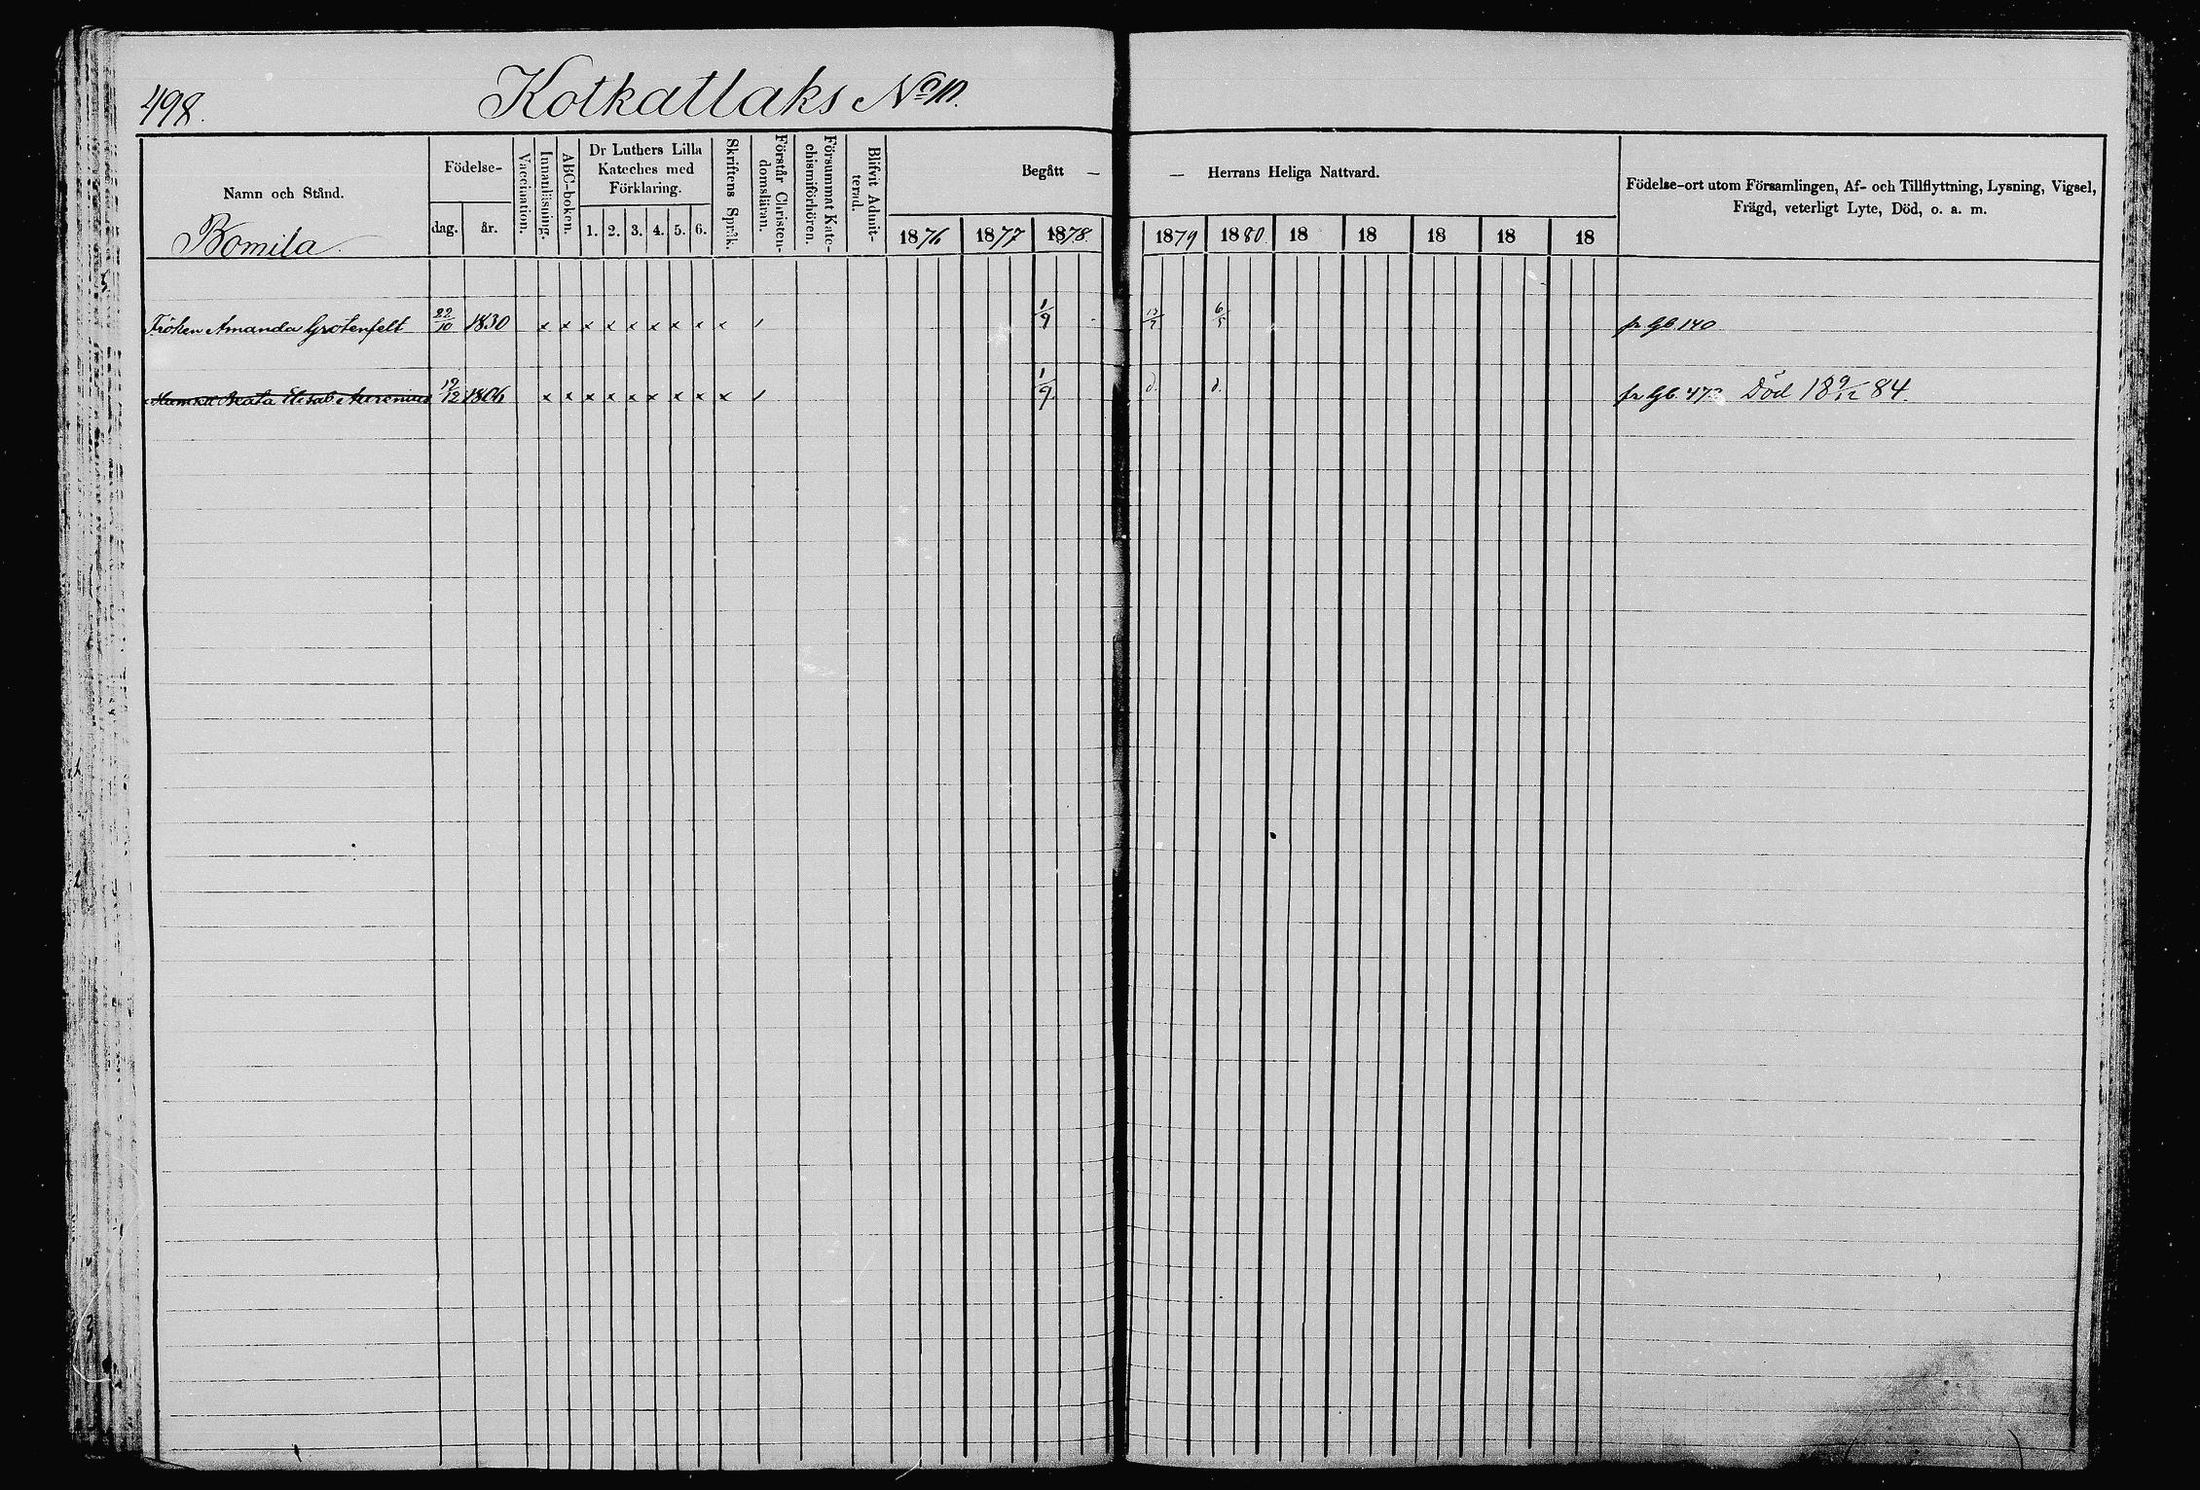 498.
Kotkatlaks No 10.
Namn och Stånd.
Födelse-
dag.
år.
Vaccination.
Innanläsning.
ABC-boken.
Dr Luthers Lilla
Kateches med
Förklaring.
1. 2. 3. 4. 5. 6.
Skriftens Språk.
Förstår Christen-
domsläran.
Försummat Kate-
chismiförhören.
Blifvit Admit-
terad.
Begått —
— Herrans Heliga Nattvard.
1876 1877 1878 1879 1880 18 18 18 18 18
Födelse-ort utom Församlingen, Af- och Tillflyttning, Lysning, Vigsel,
Frägd, veterligt Lyte, Död, o. a. m.
Bomila
Fröken Amanda Grotenfelt 22/10 1830 x x x x x x x x x 1/9 13/7 6/5 fr Gb. 140
Beata Elisab. 19/12 1806 x x x x x x x x x 1/9 d. d. fr Gb. 473 Död 18 9/12 84.